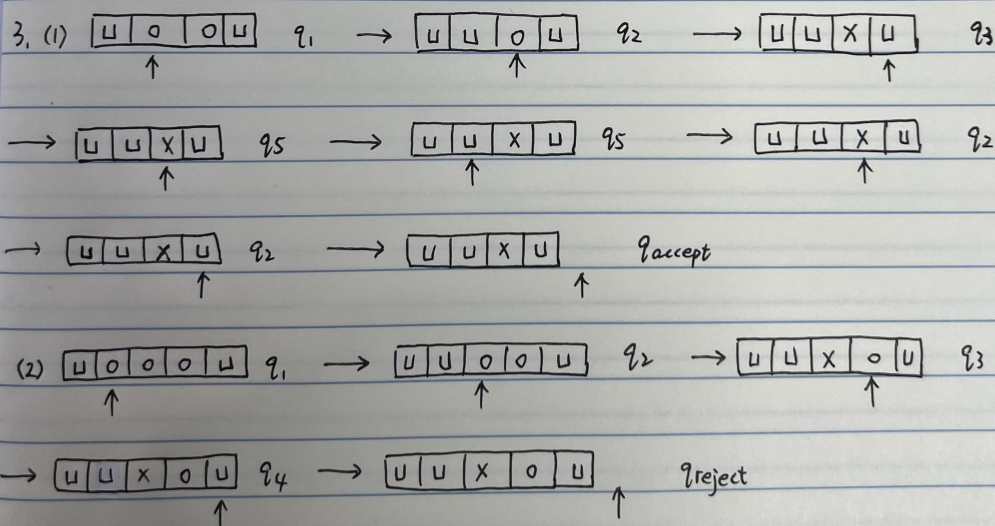 3. (1) ⊔ 0 0 ⊔ q₁ → ⊔ ⊔ 0 ⊔ q₂ → ⊔ ⊔ x ⊔ q₃
→ ⊔ ⊔ x ⊔ q₅ → ⊔ ⊔ x ⊔ q₅ → ⊔ ⊔ x ⊔ q₂
→ ⊔ ⊔ x ⊔ q₂ → ⊔ ⊔ x ⊔ q accept
(2) ⊔ 0 0 0 ⊔ q₁ → ⊔ ⊔ 0 0 ⊔ q₂ → ⊔ ⊔ x 0 ⊔ q₃
→ ⊔ ⊔ x 0 ⊔ q₄ → ⊔ ⊔ x 0 ⊔ q reject